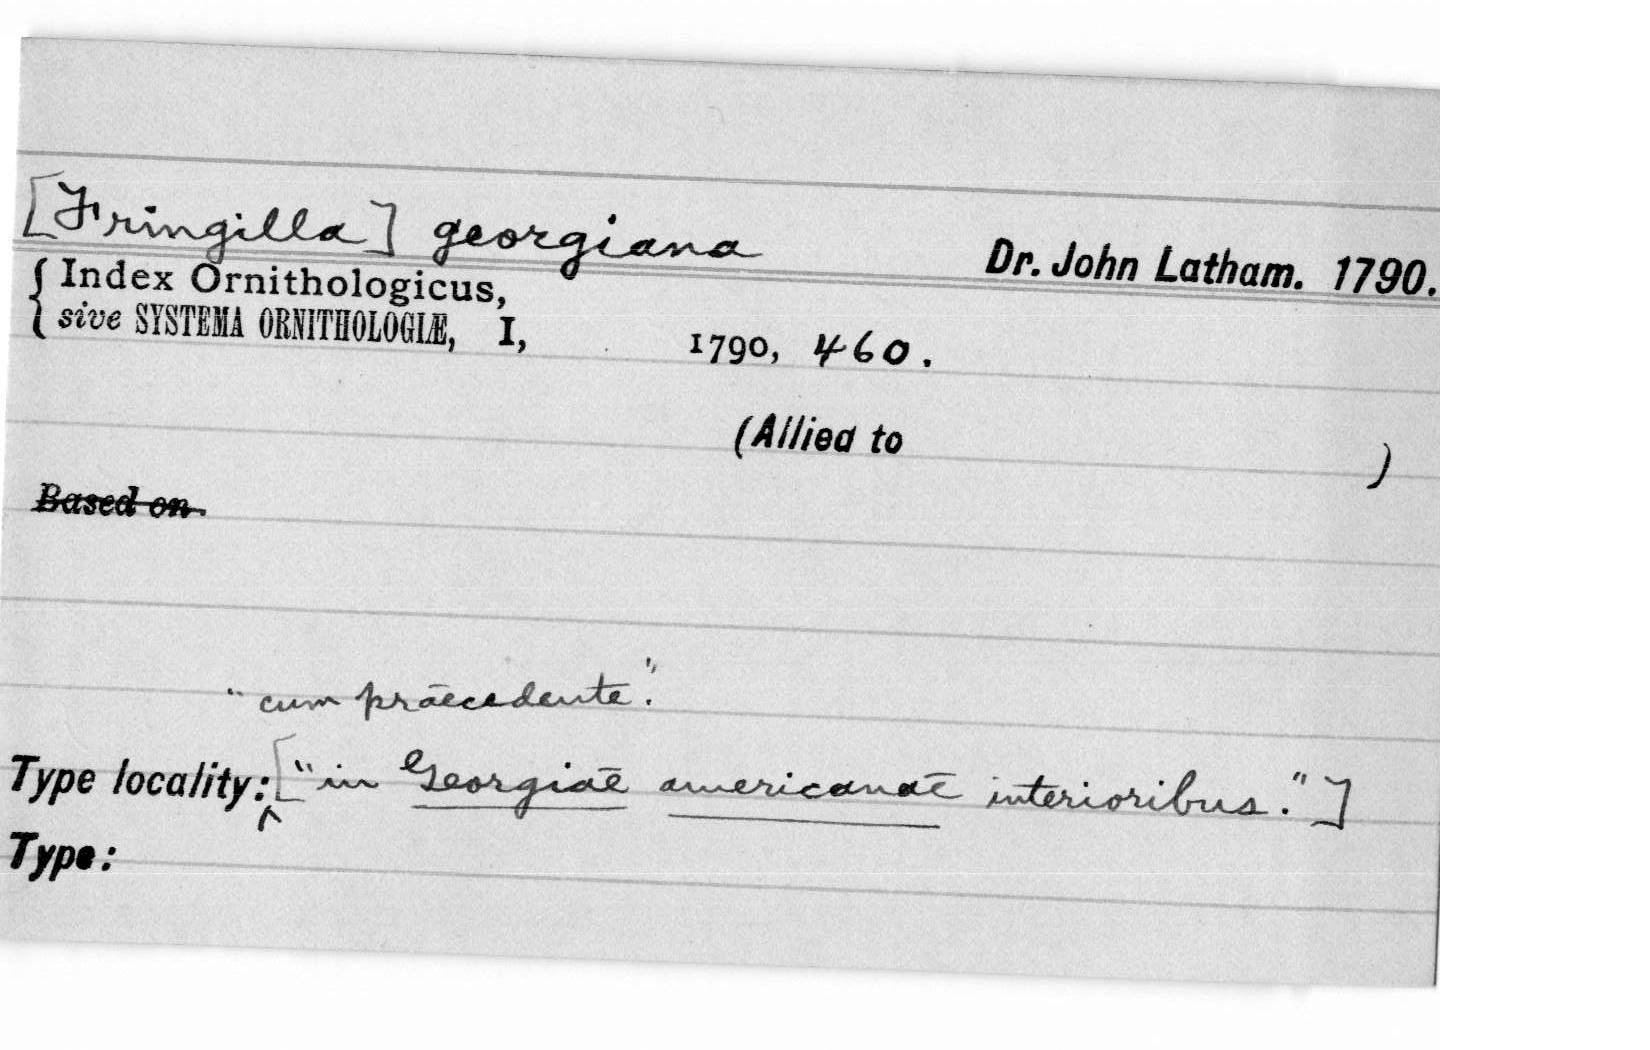 [Fringilla] georgiana
Dr. John Latham. 1790.
{ Index Ornithologicus,
sive SYSTEMA ORNITHOLOGIÆ, I, 1790, 460.
(Allied to )
Based on
"cum praecedente."
Type locality: ["in Georgiae americanae interioribus."]
Type: